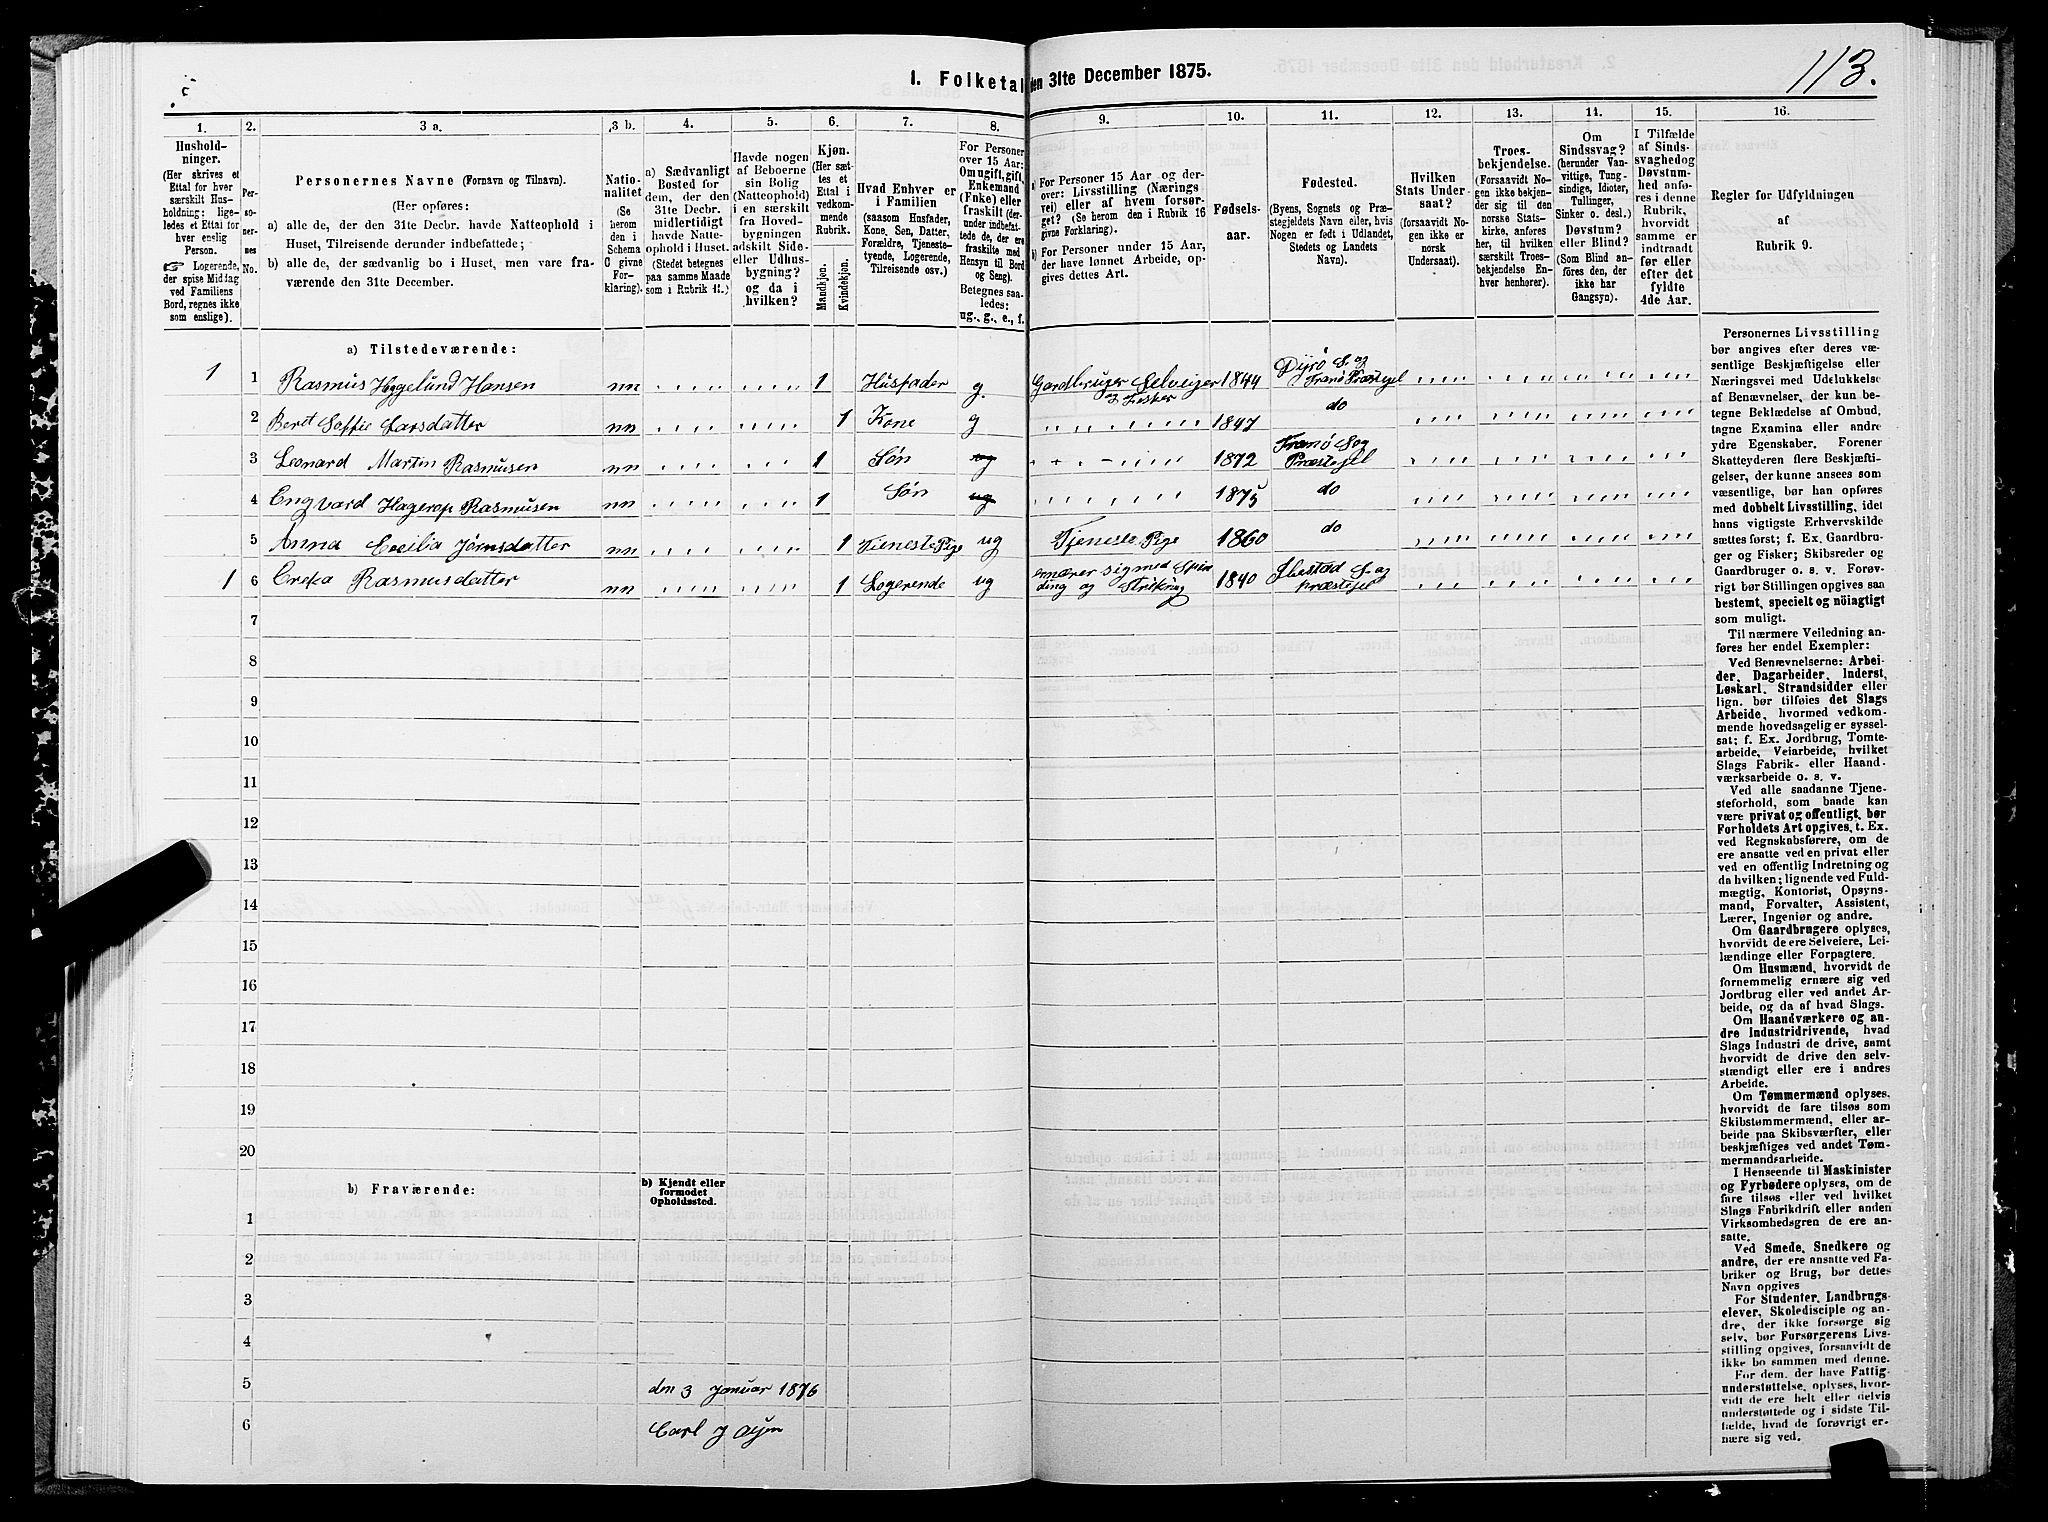 113.
I. Folketal den 31te December 1875.
1. 2. 3 a. 3 b. 4. 5. 6. 7. 8. 9. 10. 11. 12. 13. 14. 15. 16.
Husholdninger.
(Her skrives et
Ettal for hver
særskilt Husholdning: ligeledes et Ettal for
hver enslig
Person.
☞ Logerende,
der spise Middag
ved Familiens
Bord, regnes ikke
som enslige).
Personernes No.
Personernes Navne (Fornavn og Tilnavn).
(Her opføres:
a) alle de, der den 31te Decbr. havde Natteophold i
Huset, Tilreisende derunder indbefattede;
b) alle de, der sædvanlig bo i Huset, men vare fraværende den 31te December.
Nationalitet
(Se
herom
den i
Schema
C givne
Forklaring).
a) Sædvanligt
Bosted for
dem, der den
31te Decbr.
midlertidigt
havde Natteophold i Huset.
(Stedet betegnes
paa samme Maade
som i Rubrik 11.)
Havde nogen
af Beboerne
sin Bolig
(Natteophold)
i en særskilt
fra Hovedbygningen
adskilt Side-
eller Udhusbygning?
og da i
hvilken?
Kjøn.
(Her sættes et
Ettal i
vedkommende
Rubrik.
Mandkjøn.
Kvindekjøn.
Hvad Enhver er
i Familien
(saasom Husfader,
Kone, Søn, Datter,
Forældre, Tjenestetyende, Logerende,
Tilreisende osv.)
For Personer
over 15 Aar:
Om ugift, gift,
Enkemand
(Enke) eller
fraskilt (derunder indbefattede de, der ere
fraskilte med
Hensyn til Bord
og Seng).
Betegnes saaledes:
ug., g., e., f.
a) For Personer 15 Aar og derover: Livsstilling (Næringsvei) eller af hvem forsørget? (Se herom den i Rubrik 16
givne Forklaring).
b) For Personer under 15 Aar,
der have lønnet Arbeide, opgives dettes Art.
Fødselsaar.
Fødested.
(Byens, Sognets og Præstegjeldets Navn eller, hvis
Nogen er født i Udlandet,
Stedets og Landets
Navn).
Hvilken
Stats Undersaat?
(forsaavidt Nogen ikke er
norsk
Undersaat).
Troesbekjendelse.
(Forsaavidt Nogen ikke bekjender sig til den
norske Statskirke, anføres
her, til hvilken
særskilt Troesbekjendelse Enhver henhører).
Om
Sindssvag?
(herunder Vanvittige, Tungsindige, Idioter,
Tullinger,
Sinker o. desl.)
Døvstum?
eller Blind?
(Som Blind anføres den, der
ikke har
Gangsyn).
I Tilfælde
af Sindssvaghed og
Døvstumhed anføres i denne
Rubrik,
hvorvidt
samme er
indtraadt
før eller
efter det
fyldte
4de Aar.
Regler for Udfyldningen
af
Rubrik 9.
a) Tilstedeværende:
1 1 Rasmus Hygelund Hansen nn 1 Husfader g. Gardbruger Selveiger og Fisker 1844 Dyrø S. og Tranø Præstegjel
2 Beret Soffie Larsdatter nn 1 Kone g 1847 do
3 Leonard Martin Rasmusen nn 1 Søn ug 1872 Tranø Sog Præstegjel
4 Engvard Hagerop Rasmusen nn 1 Søn ug 1875 do
5 Anna Cecilia Jørnsdatter nn 1 Tieneste Pige ug Tjeneste Pige 1860 do
1 6 Creka Rasmusdatter nn 1 Logerende ug ernærer sig med Spinding og Strikning 1840 Ibestad S. og Præstegjel
7
8
9
10
11
12
13
14
15
16
17
18
19
20
b) Fraværende:
b) Kjendt eller
formodet
Opholdssted.
1
2
3
4
5
6
den 3 Januar 1876
Carl J
Personernes Livsstilling
bør angives efter deres væsentlige Beskjæftigelse eller
Næringsvei med Udelukkelse
af Benævnelser, der kun betegne Beklædelse af Ombud,
tagne Examina eller andre
ydre Egenskaber. Forener
Skatteyderen flere Beskjæftigelser, der kunne ansees som
væsentlige, bør han opføres
med dobbelt Livsstilling, idet
hans vigtigste Erhvervskilde
sættes først; f. Ex. Gaardbruger og Fisker; Skibsreder og
Gaardbruger o. s. v. Forøvrigt bør Stillingen opgives saa
bestemt, specielt og nöiagtigt
som muligt.
Til nærmere Veiledning anføres her endel Exempler:
Ved Benævnelserne: Arbeider, Dagarbeider, Inderst,
Løskarl, Strandsidder eller
lign. bør tilføies det Slags
Arbeide, hvormed vedkommende hovedsagelig er sysselsat; f. Ex. Jordbrug, Tomtearbeide, Veiarbeide, hvilket
Slags Fabrik- eller Haandværksarbeide o. s. v.
Ved alle saadanne Tjenesteforhold, som baade kan
være privat og offentligt, bør
Forholdets Art opgives, t. Ex.
ved Regnskabsførere, om de
ere ansatte ved en privat eller
ved en offentlig Indretning og
da hvilken; lignende ved Fuldmægtig, Kontorist, Opsynsmand, Forvalter, Assistent,
Lærer, Ingeniør og andre.
Om Gaardbrugere oplyses,
hvorvidt de ere Selveiere, Leilændinge eller Forpagtere.
Om Husmænd, hvorvidt de
fornemmelig ernære sig ved
Jordbrug eller ved andet Arbeide, og da af hvad Slags.
Om Haandværkere og andre Industridrivende, hvad
Slags Industri de drive, samt
hvorvidt de drive den selvstændigt eller ere i andres
Arbeide.
Om Tømmermænd oplyses,
hvorvidt de fare tilsøs som
Skibstømmermænd, eller arbeide paa Skibsværfter, eller
beskjæftiges ved andet Tømmermandsarbeide.
I Henseende til Maskinister
og Fyrbødere oplyses, om de
fare tilsøs eller ved hvilket
Slags Fabrikdrift eller anden
Virksomhedsgren de ere ansatte.
Ved Smede, Snedkere og
andre, der ere ansatte ved Fabriker og Brug, bør dettes
Navn opgives
For Studenter, Landbrugselever, Skoledisciple og andre, der ikke forsørge sig
selv, bør Forsørgerens Livsstilling opgives, forsaavidt de
ikke bo sammen med denne.
For dem, der have Fattigunderstøttelse, oplyses, hvorvidt de ere helt eller delvis
understøttede og i sidste Tilfælde, hvad de forøvrigt ernære sig ved.